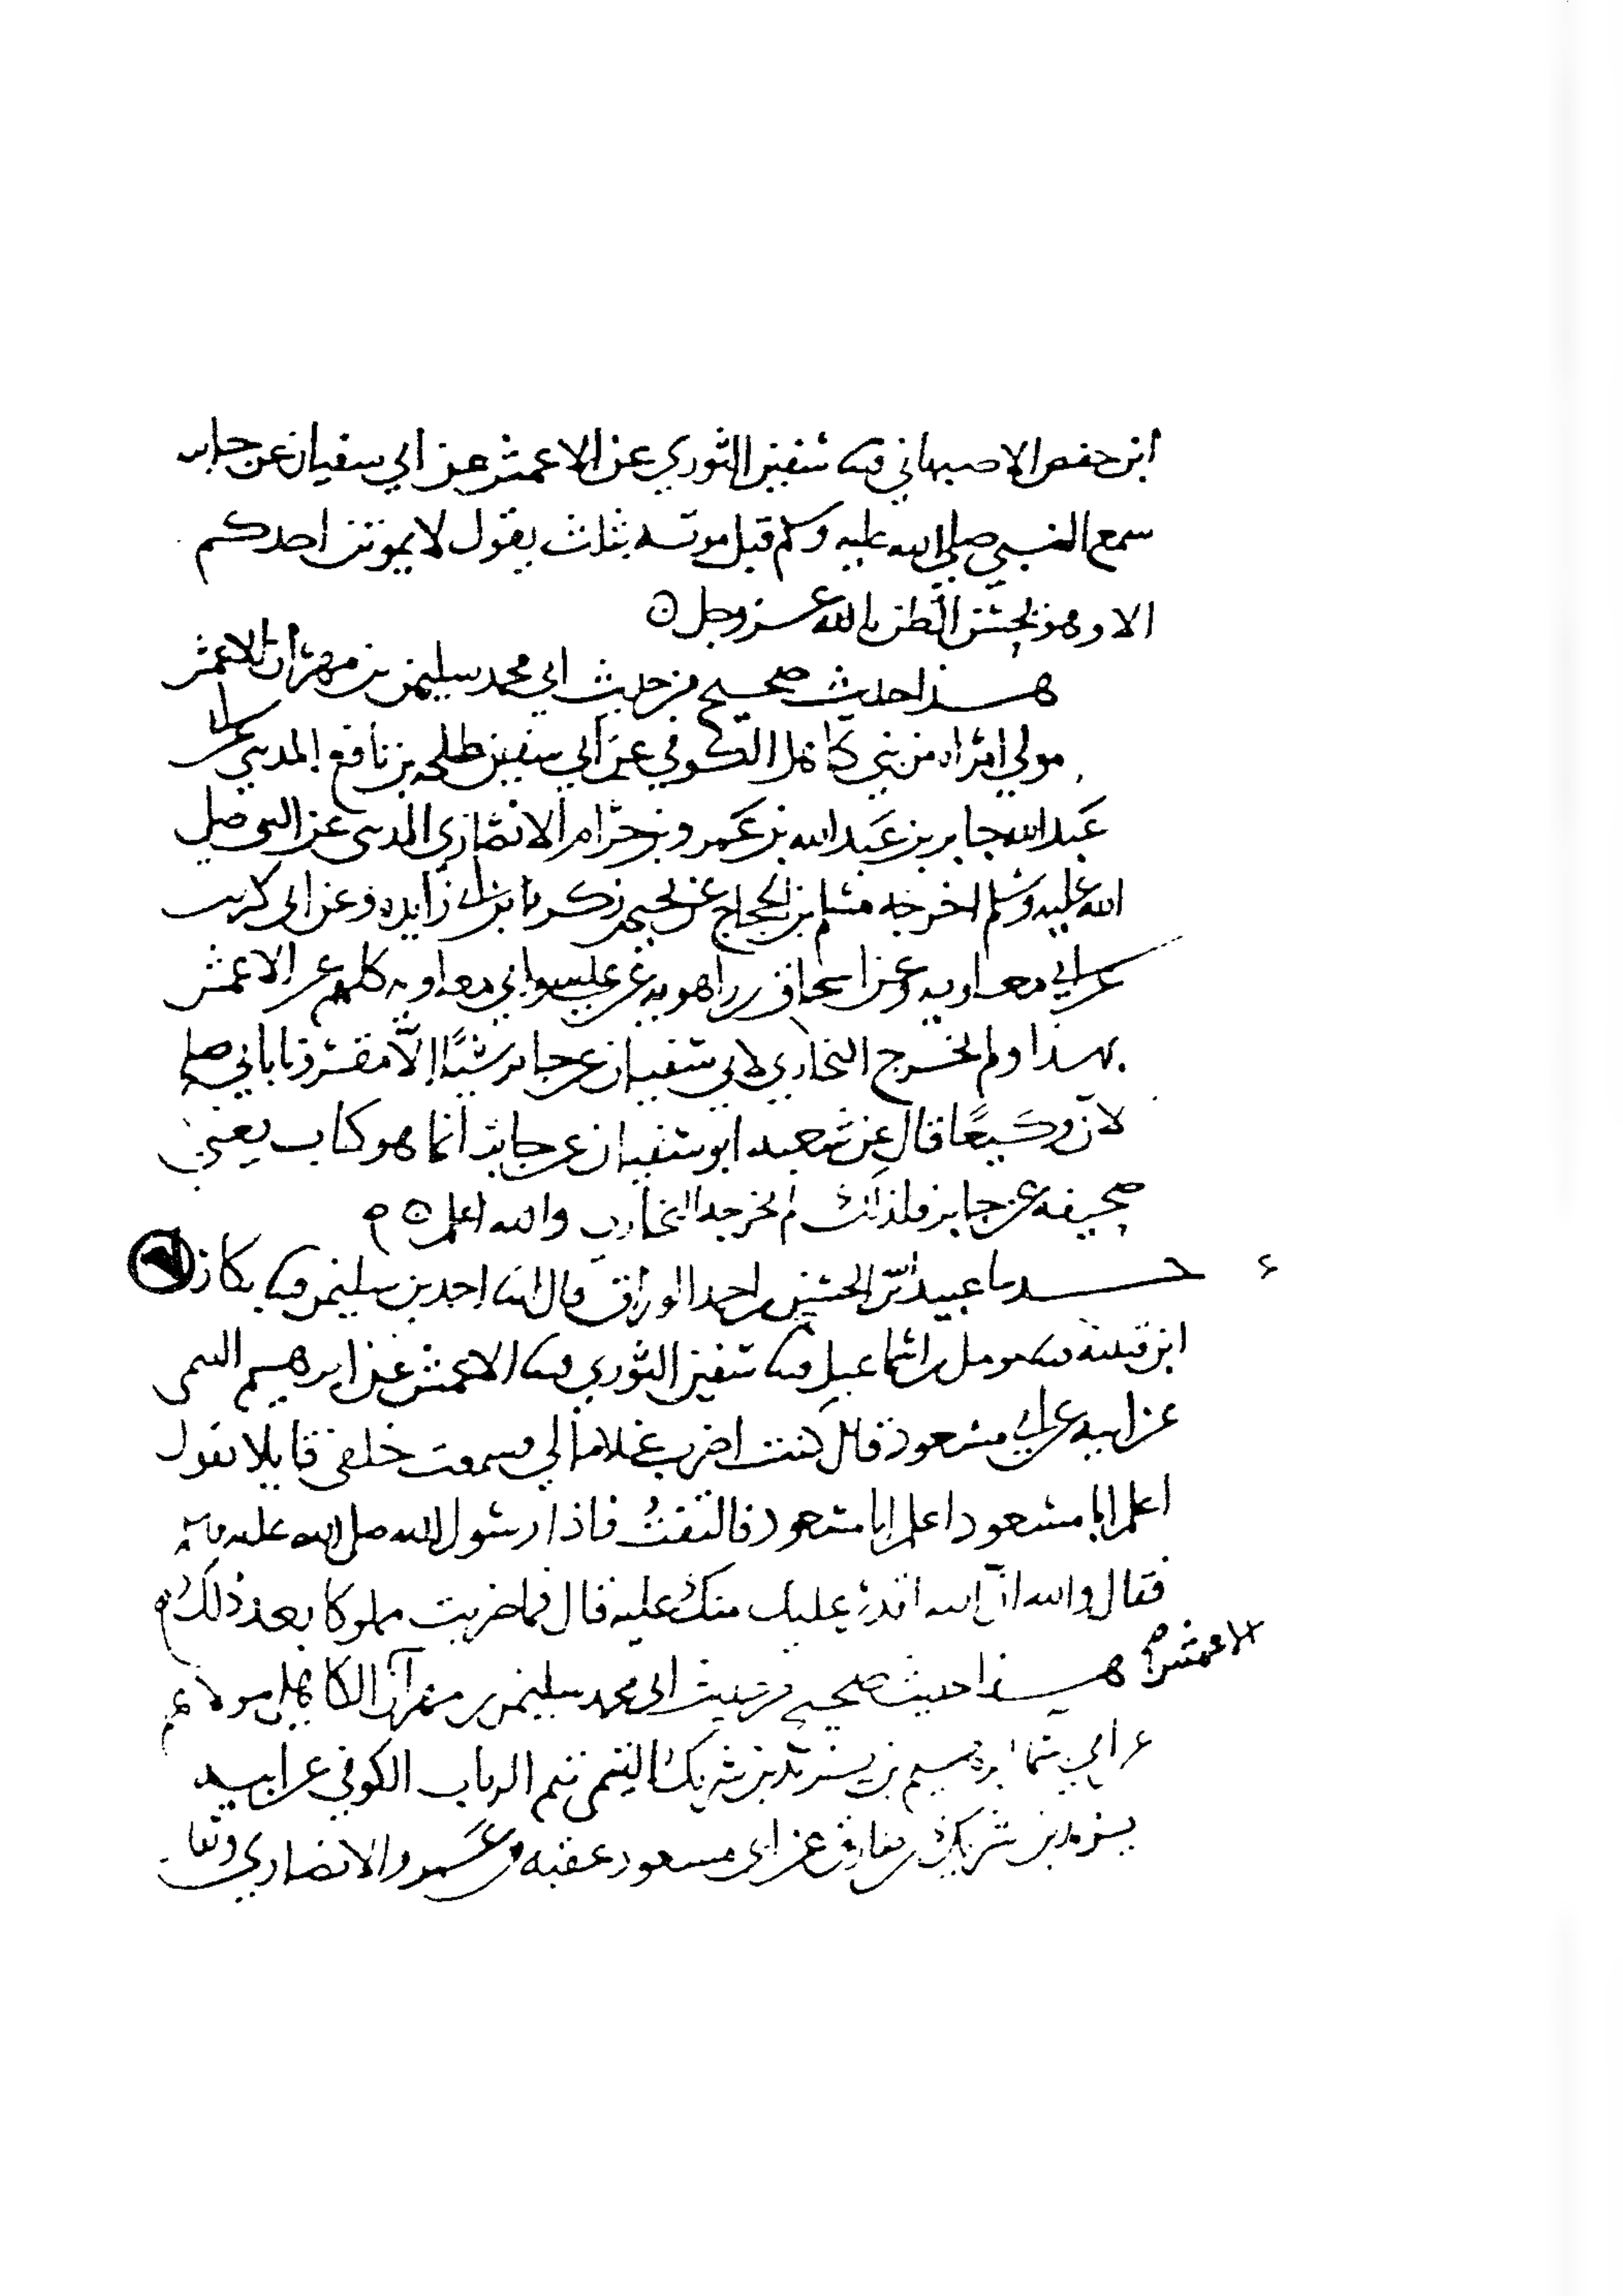 ابن حفص الاصبهاني ثنا سفين الثوري عن الاعمش عن ابي سفيان عن جابر
سمع النبي صلي الله عليه وسلم قبل موته بثلث يقول لا يموتن احدكم
الا وهو يحسن الظن بالله عز وجل
هذا حديث صحيح من حديث ابي محمد سليمن بن مهران الاعمش
مولي امراه من بني كاهل الكوفي عن ابي سفين طلحه بن نافع المديني عن ابي
عبد الله جابر بن عبد الله بن عمرو بن حرام الانصاري المدني عن النبي صلى
الله عليه وسلم اخرجه مسلم بن الحجاج عن يحيى زكريا بن ابي زايده وعن ابي كريب
عن ابي معاويه وعن اسحاق بن راهويه عن عيسي وابي معاويه كلهم عن الاعمش
بهذا ولم يخرج البخاري لابي سفيان عن جابر شيئا الا مقرونا بابي صالح
لان وكيعا قال عن شعبه ابو سفيان عن جابر انما هو كتاب يعني
صحيفه عن جابر فلذلك لم يخرجه البخاري والله اعلم
حدثنا عبيد الله بن الحسين بن احمد الوراق قال ثنا احمد بن سليمن ثنا بكار
ابن قتيبه ثنا مومل بن اسماعيل ثنا سفين الثوري ثنا الاعمش عن ابرهيم التيمي
عن ابيه عن ابي مسعود قال كنت اضرب غلاما لي فسمعت خلفي قايلا يقول
اعلم ابا مسعود اعلم ابا مسعود فالتفت فاذا رسول الله صلى الله عليه وسلم
فقال والله ان الله اقدر عليك منك عليه قال فما ضربت مملوكا بعد ذلك
هذا حديث صحيح من حديث ابي محمد سليمن بن مهران الكاهلي مولاهم
الاعمش
عن ابي اسما ابرهيم بن يزيد بن شريك التيمي تيم الرباب الكوفي عن ابيه
يزيد بن شريك بن طارق عن ابي مسعود عقبه بن عمرو الانصاري